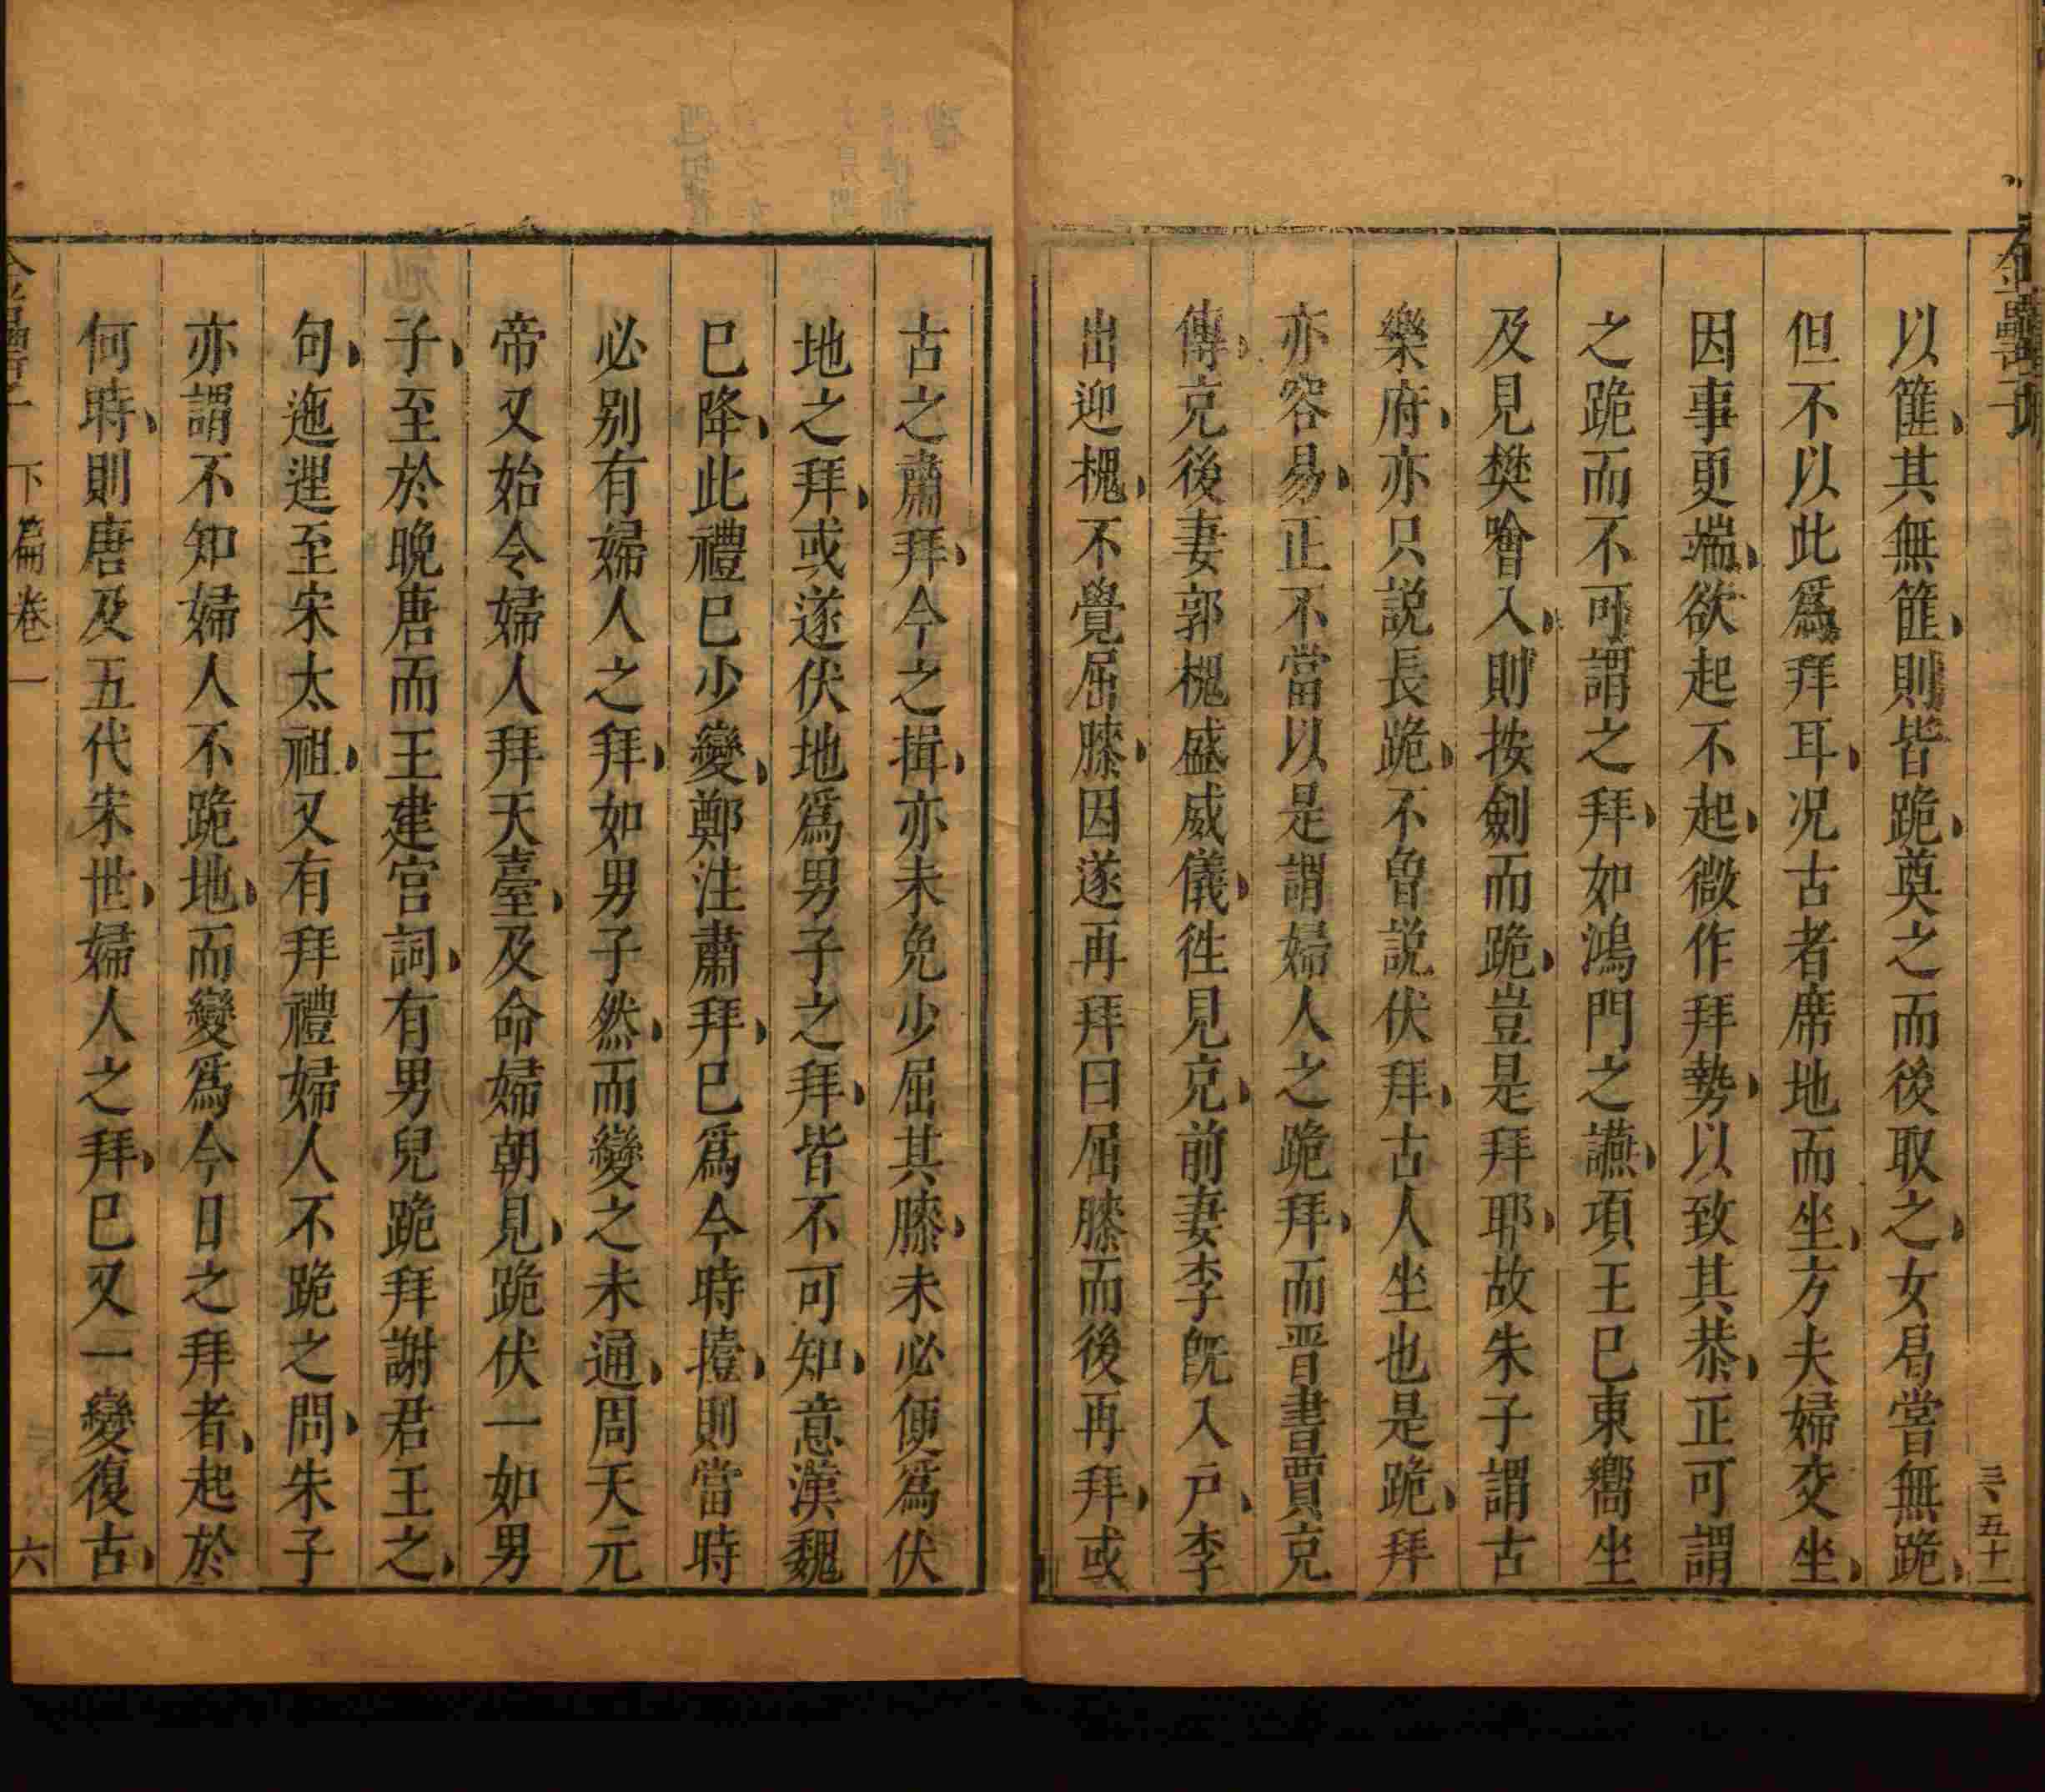 金罍子
以篚、其無篚、則皆跪、奠之而後取之、女曷嘗無跪、
但不以此爲拜耳、况古者席地而坐、方夫婦交坐、
因事更端、欲起不起、微作拜勢、以致其恭、正可謂
之跪而不可謂之拜、如鴻門之讌、項王巳東嚮坐
及見樊噲入、則按劍而跪、豈是拜耶、故朱子謂古
樂府、亦只説長跪、不曾説伏拜、古人坐也是跪、拜
亦容易、正不當以是謂婦人之跪拜、而晋書賈充
傳、充後妻郭槐盛威儀、徃見充、前妻李旣入户、李
出迎槐、不覺屈膝、因遂再拜曰屈膝而後再拜、或
古之肅拜、今之揖、亦未免少屈其膝、未必便爲伏
地之拜、或遂伏地爲男子之拜、皆不可知、意漢魏
巳降、此禮巳少變、鄭注肅拜、巳爲今時撎、則當時
必别有婦人之拜、如男子然、而變之未通、周天元
帝又始令婦人拜天臺、及命婦朝見、跪伏一如男
子、至於晚唐而王建宫詞、有男兒跪拜謝君王之、
句、迤邐至宋太祖、又有拜禮婦人不跪之問、朱子
亦謂不知婦人不跪地、而變爲今日之拜者、起於
何時、則唐及五代宋世、婦人之拜、巳又一變復古、
下篇卷一
六